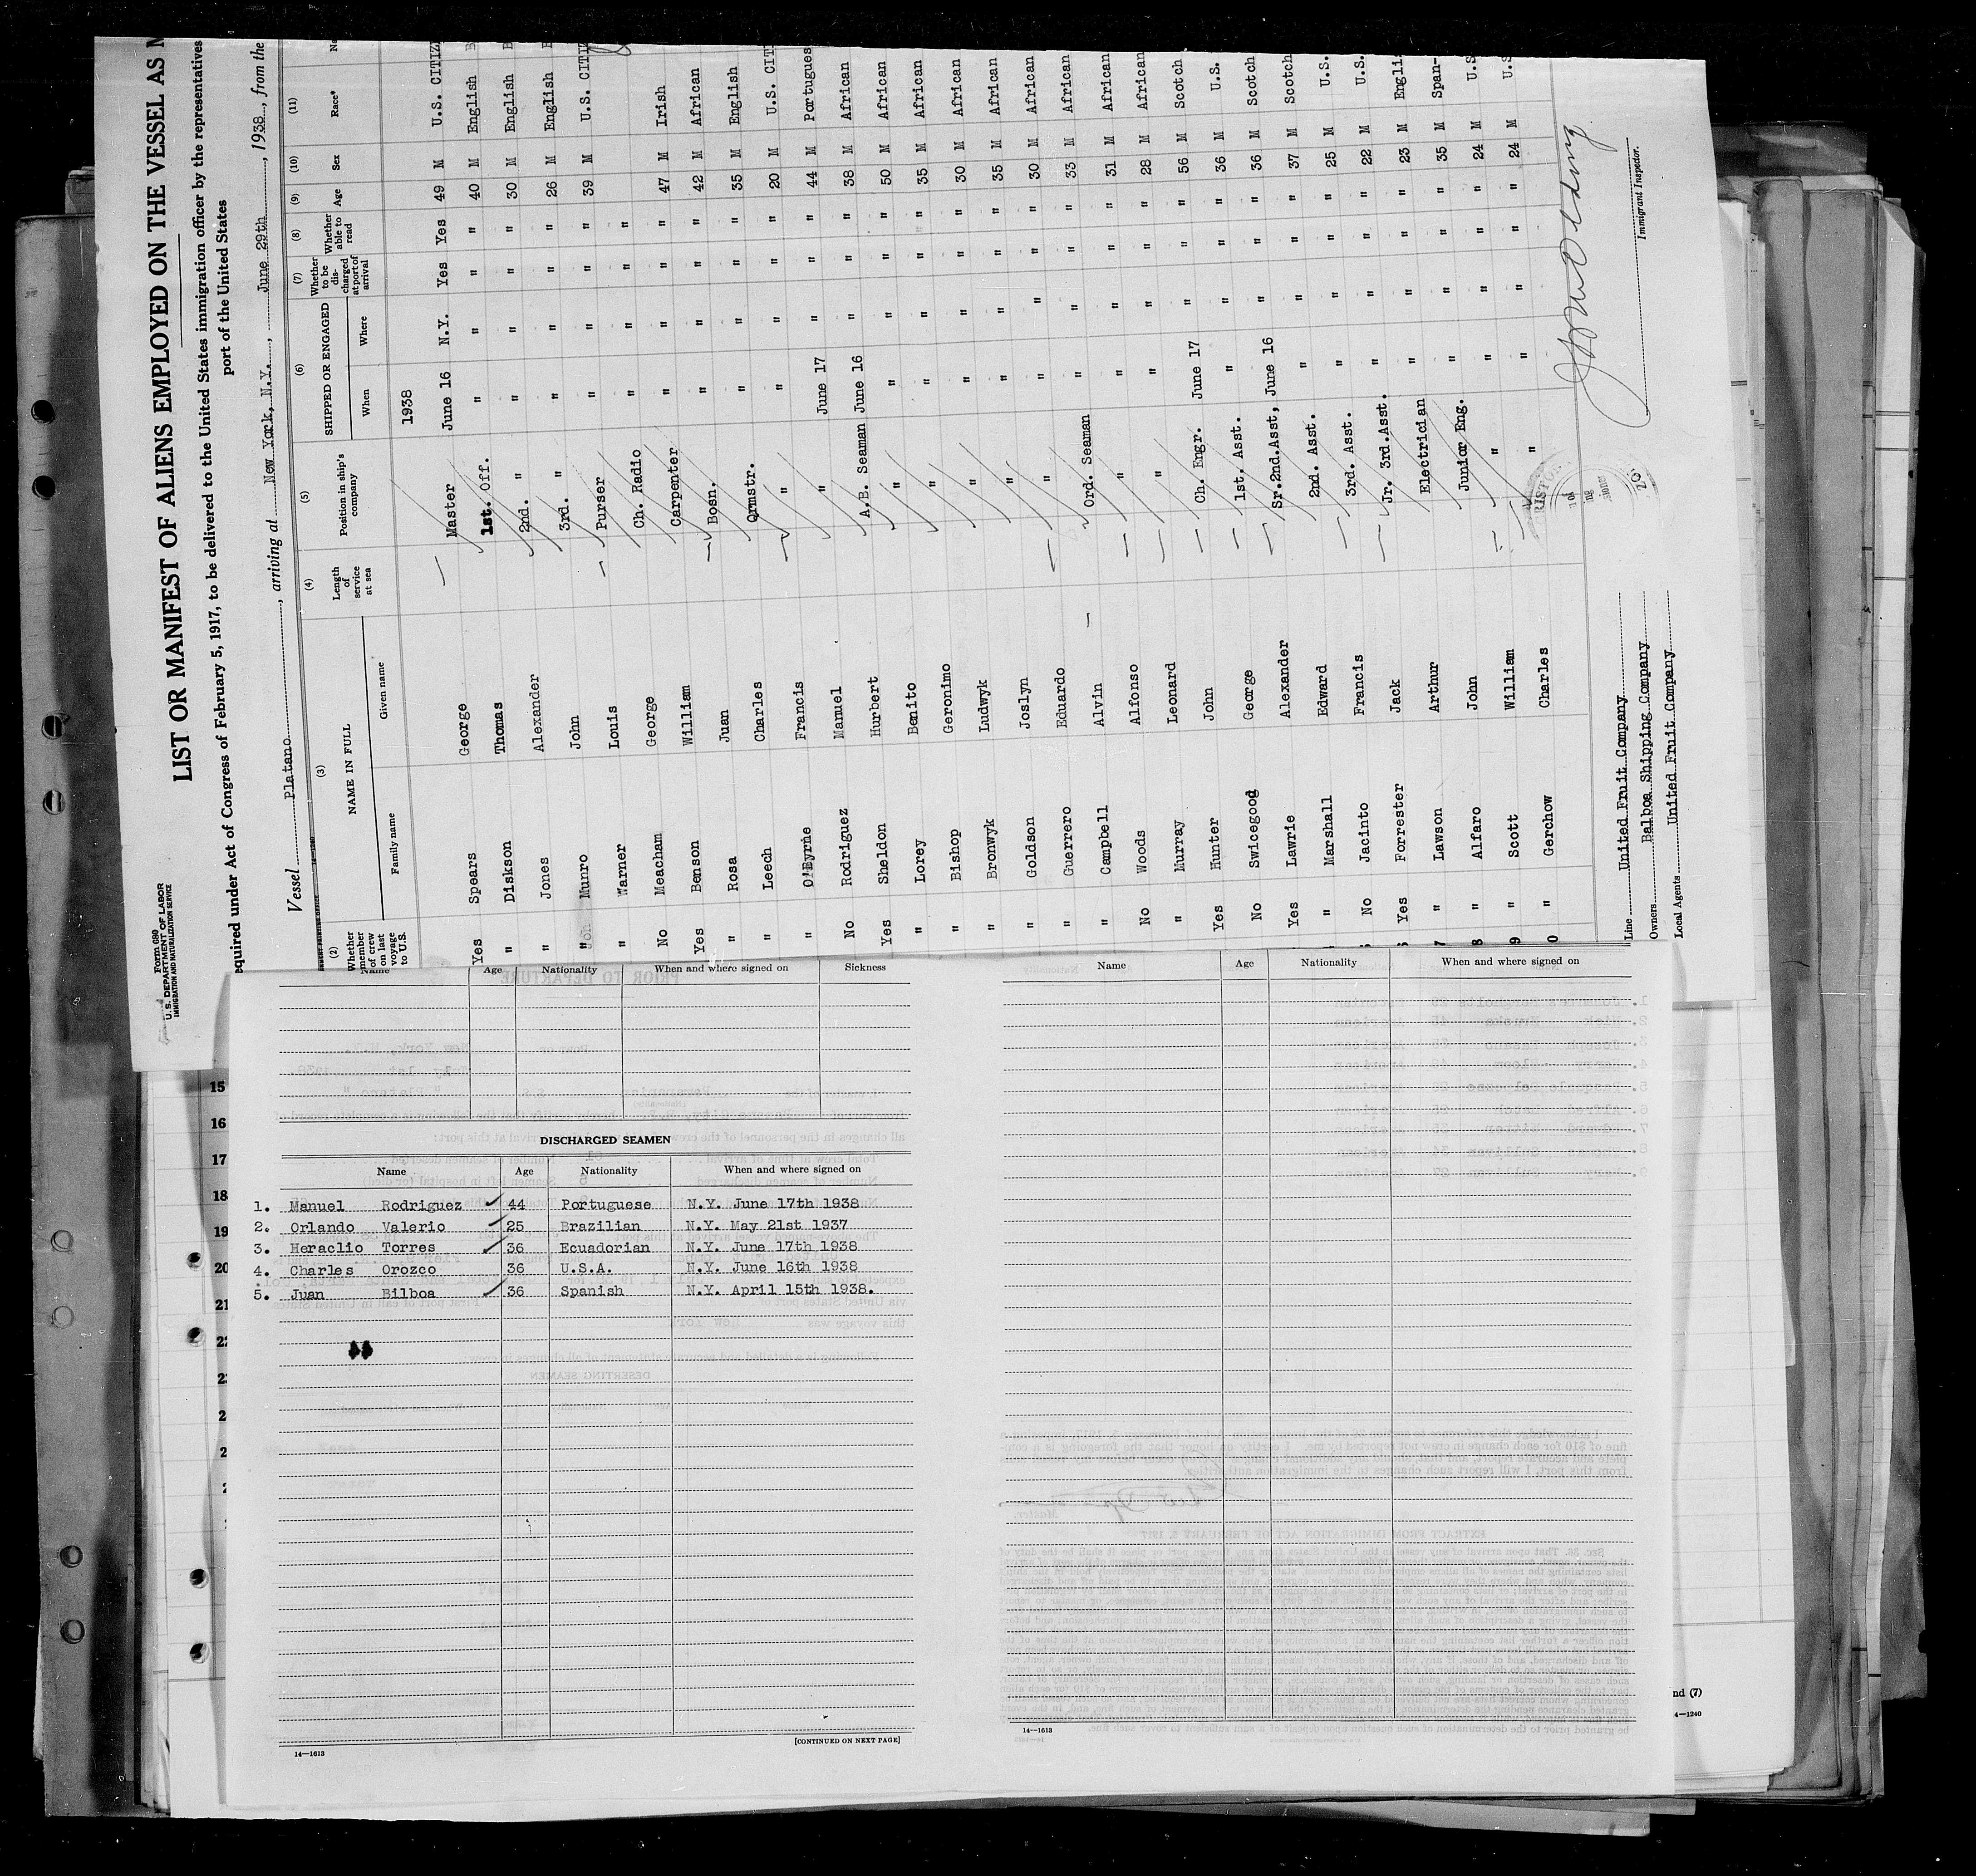 Form 680
U. S. DEPARTMENT OF LABOR
IMMIGRATION AND NATURALIZATION SERVICE
LIST OR MANIFEST OF ALIENS EMPLOYED ON THE VESSEL AS M
equired under Act of Congress of February 5, 1917, to be delivered to the United States immigration officer by the representatives
port of the United States
Vessel Platano, arriving at New York, N.Y., June 29th, 1938, from the
(2) (3) (4) (5) (6) (7) (8) (9) (10) (11)
Whether member of crew on last voyage to U.S. NAME IN FULL Length of service at sea Position in ship's company SHIPPED OR ENGAGED Whether to be discharged at port of arrival Whether able to read Age Sex Race* Na
Family name Given name When Where
1938
Yes Spears George Master June 16 N.Y. Yes Yes 49 M U.S. CITIZ
" Diskson Thomas 1st. Off. " " " " 40 M English
" Jones Alexander 2nd. " " " " " 30 M English
" Munro John 3rd. " " " " " 26 M English
" Warner Louis Purser " " " " 39 M U.S. CITIZ
No Meacham George Ch. Radio " " " "
Yes Benson William Carpenter " " " " 47 M Irish
" Rosa Juan Bosn. " " " " 42 M African
" Leech Charles Qrmstr. " " " " 35 M English
" O'Byrne Francis " " " " " 20 M U.S. CIT
No Rodriguez Manuel " June 17 " " " 44 M Portugues
Yes Sheldon Hurbert A.B. Seaman June 16 " " " 38 M African
" Lorey Benito " " " " " 50 M African
" Bishop Geronimo " " " " " 35 M African
" Bronwyk Ludwyk " " " " " 30 M African
" Goldson Joslyn " " " " " 35 M African
" Guerrero Eduardo " " " " " 30 M African
" Campbell Alvin Ord. Seaman " " " " 33 M African
No Woods Alfonso " " " " " 31 M African
" Murray Leonard " " " " " 28 M African
Yes Hunter John Ch. Engr. June 17 " " " 56 M Scotch
No Swicegood George 1st. Asst. " " " " 36 M U.S.
Yes Lawrie Alexander Sr.2nd.Asst, June 16 " " " 36 M Scotch
" Marshall Edward 2nd. Asst. " " " " 37 M Scotch
No Jacinto Francis 3rd. Asst. " " " " 25 M U.S.
Yes Forrester Jack Jr. 3rd.Asst. " " " " 22 M U.S.
7 " Lawson Arthur Electrician " " " " 23 M Engli
8 " Alfaro John Junior Eng. " " " " 35 M Span-
9 " Scott William " " " " " 24 M U.S
0 " Gerchow Charles " " " " " 24 M U.S
Line United Fruit Company
Owners Balboa Shipping Company
Local Agents United Fruit Company
Immigrant Inspector.
Name Age Nationality When and where signed on Sickness
DISCHARGED SEAMEN
Name Age Nationality When and where signed on
1. Manuel Rodriguez 44 Portuguese N.Y. June 17th 1938
2. Orlando Valerio 25 Brazilian N.Y. May 21st 1937
3. Heraclio Torres 36 Ecuadorian N.Y. June 17th 1938
4. Charles Orozco 36 U.S.A. N.Y. June 16th 1938
5. Juan Bilboa 36 Spanish N.Y. April 15th 1938.
14—1613
[CONTINUED ON NEXT PAGE]
Name Age Nationality When and where signed on
14—1613
15
16
17
18
19
20
21
22
nd (7)
4—1240